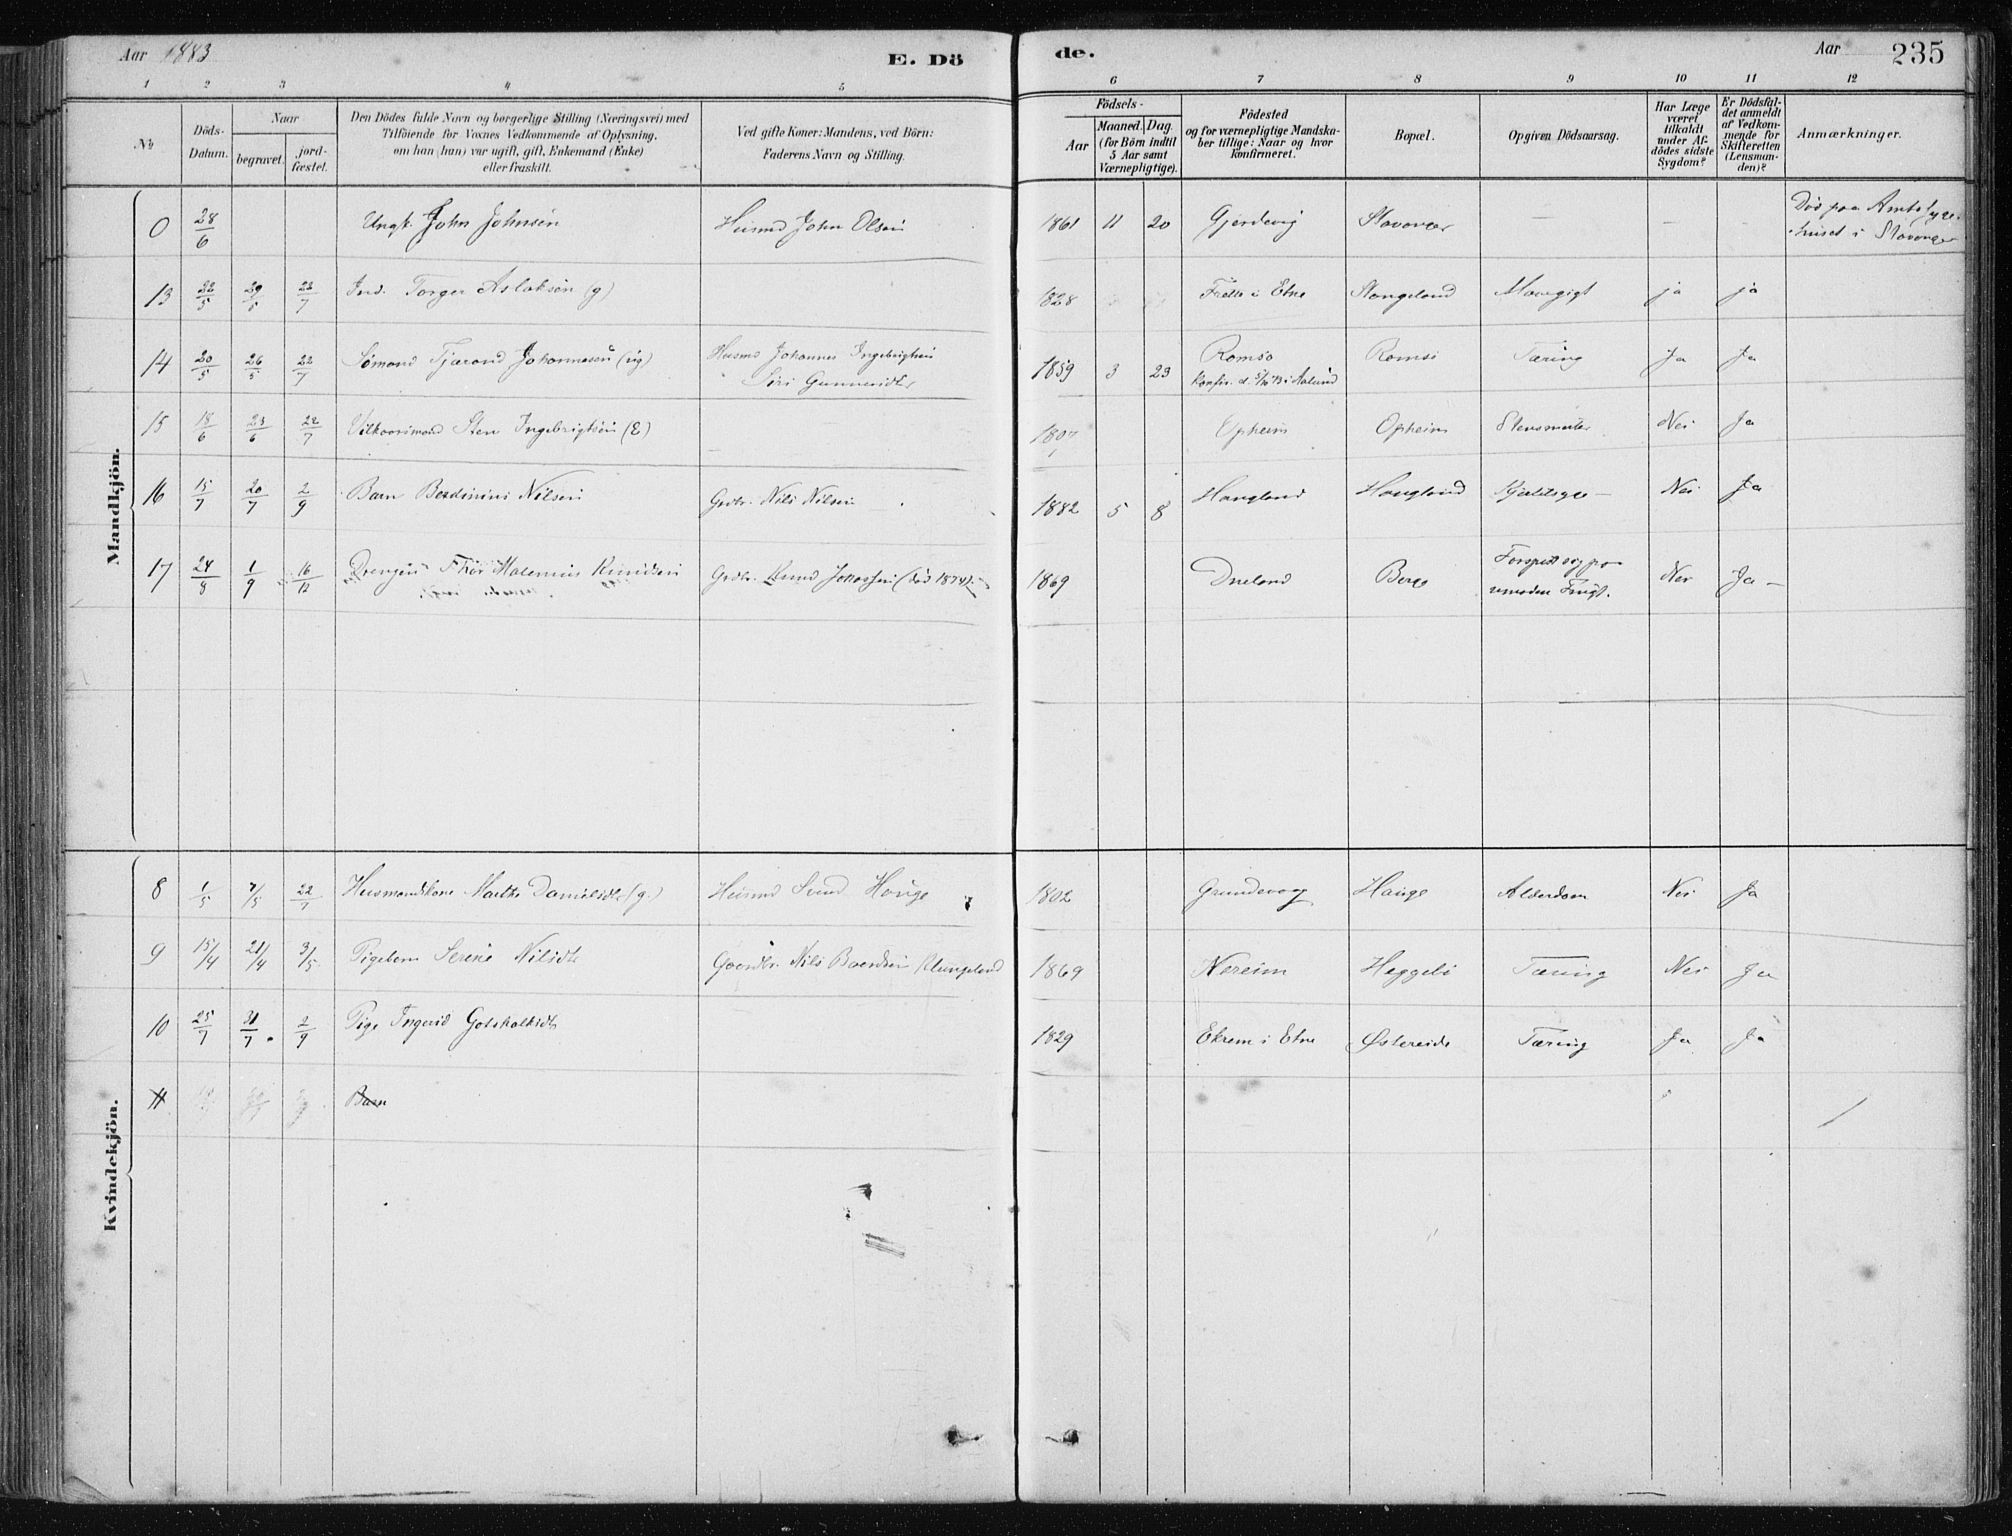 Aar 1883
E. Dö
de.
Aar
235
1 2 3 4 5 6 7 8 9 10 11 12
№
Döds-
Datum.
Naar
begravet.
jord-
fæstet.
Den Dödes fulde Navn og borgerlige Stilling (Næringsvei) med
Tilföiende for Voxnes Vedkommende af Oplysning,
om han (hun) var ugift, gift, Enkemand (Enke)
eller fraskilt.
Ved gifte Koner: Mandens, ved Börn:
Faderens Navn og Stilling.
Födsels-
Aar
Maaned. Dag.
(for Börn indtil
5 Aar samt
Værnepligtige).
Födested
og for værnepligtige Mandska-
ber tillige: Naar og hvor
konfirmeret.
Bopæl.
Opgiven Dödsaarsag.
Har Læge
været
tilkaldt
under Af-
dödes sidste
Sygdom?
Er Dödsfal-
det anmeldt
af Vedkom-
mende for
Skifteretten
(Lensman-
den)?
Anmærkninger.
Mandkjön.
0 28/6 Ungk. John Johnsen Husmd John Olsen 1861 11 20 Gjerdevig Stavanger — — — Död paa Amtssyge-
huset i Stavanger
13 22/5 29/5 22/7 Ind. Torger Aslaksen (g) 1828 Frette i Etne Stangeland Mavegigt ja ja
14 20/5 26/5 22/7 Sömand Tjærand Johannesen (ug) Husmd Johannes Ingebrigtsen
Siri Gunnersdtr 1859 3 23 Romsö
Konfir. d. 5/10 73 i Aalund Romsö Tæring Ja Ja
15 18/6 23/6 22/7 Vilkaarsmand Sten Ingebrigtsen (E) 1807 Opheim Opheim Stensmerter Nei Ja
16 15/7 20/7 2/9 Barn Berdinius Nilsen Grdbr. Nils Nilsen 1882 5 8 Haugland Haugland Kjertelsyge — Nei Ja
17 24/8 1/9 16/12 Drengen Thor Malenius Knudsen Grdbr. Knud Johassen (död 1874) 1869 Dueland Berge Forspist sig paa
umoden Frugt. Nei Ja —
Kvindekjön.
8 1/5 7/5 22/7 Husmandskone Marthe Danielsdtr (g.) Husmd Svend Hauge 1802 Grundevaag Hauge Alderdom Nei Ja
9 15/4 21/4 3/5 Pigebarn Serene Nilsdtr Gaardbr. Nils Baardsen Klungeland 1869 Nereim Heggelö Tæring Nei Ja
10 25/7 31/7 2/9 Pige Ingerid Gotskalksdtr 1829 Ekrem i Etne Østereide Tæring Ja Ja
11 Barn